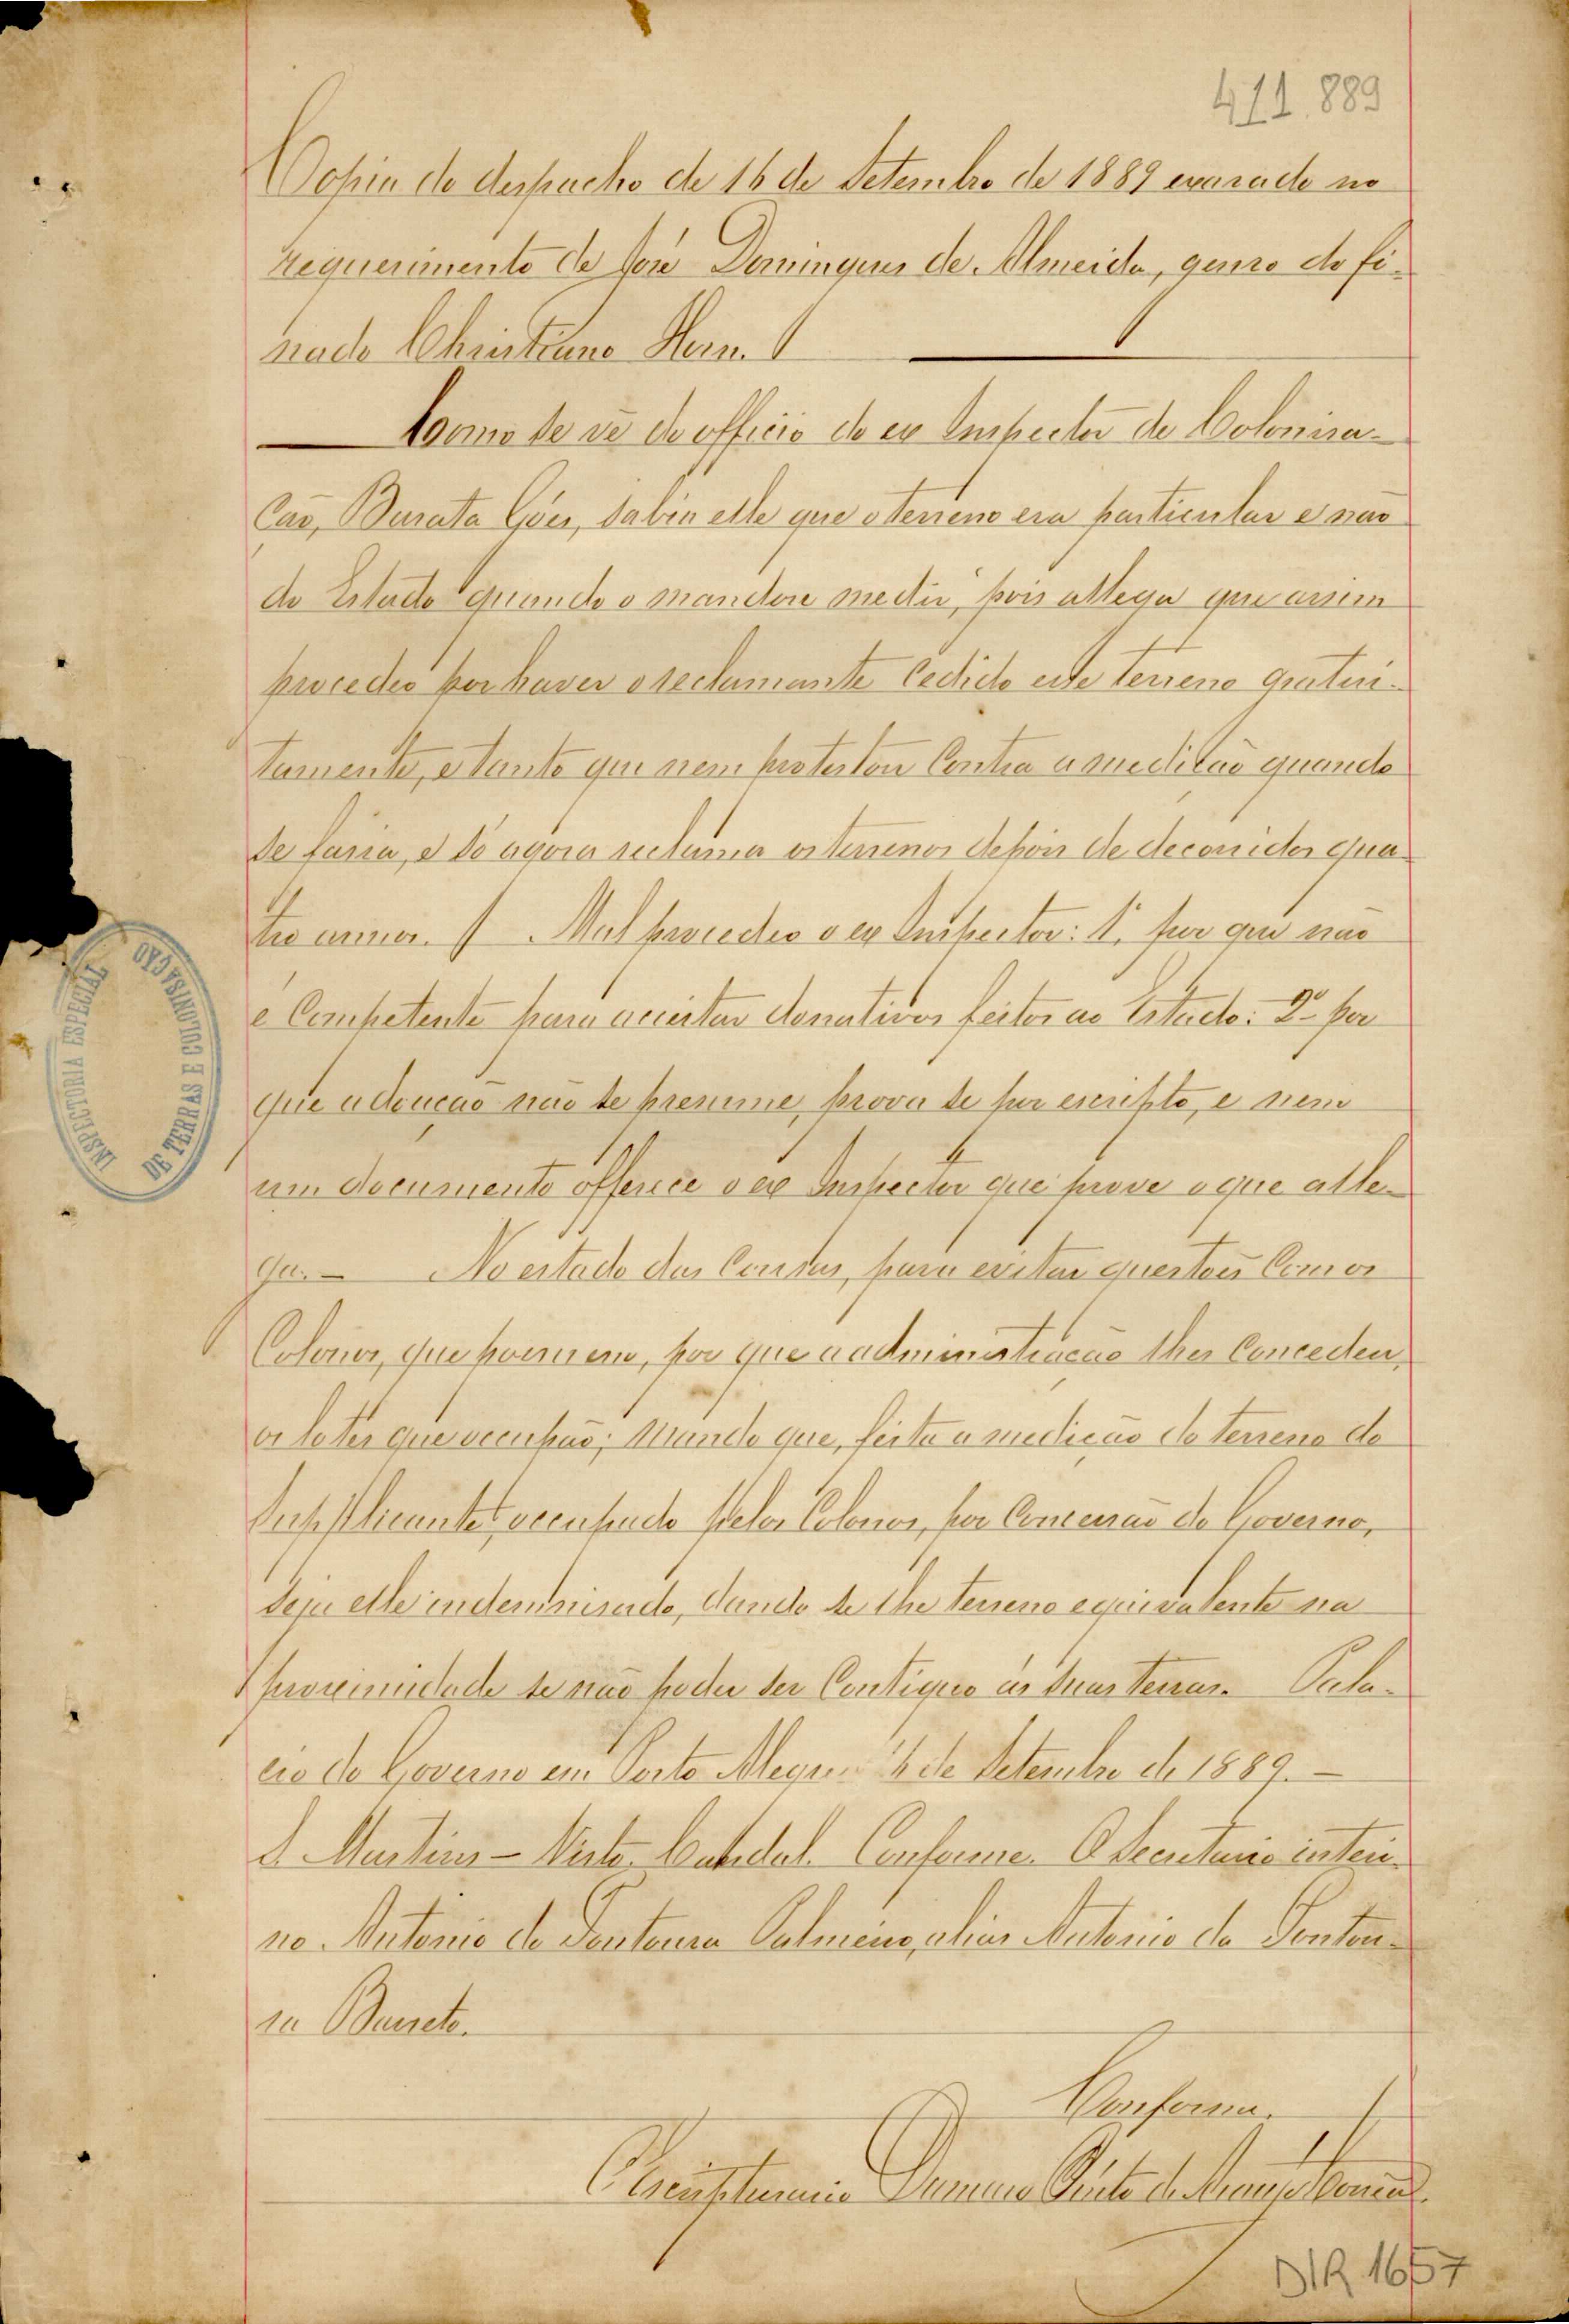 411.889
Copia do despacho de 16 de Setembro de 1889 exarado no
requerimento de José Domingues de Almeida, genro do fi-
nado Christiano Horn.
Como se vê do officio do ex Inspector de Colonisa-
ção, Barata Góes, sabia elle que o terreno era particular e não
do Estado quando o mandou medir, pois allega que assim
procedeo por haver o reclamante cedido esse terreno gratui-
tamente, e tanto que nem protestou contra a medição quando
se fasia, e só agora reclama os terrenos depois de decorridos qua-
tro annos. Mal procedeo o ex Inspector: 1º por que não
é competente para acceitar donativos feitos ao Estado: 2º por
que a doação não se presume, prova se por escripto, e nem
um documento offerece o ex Inspector que prove o que alle-
ga. – No estado das cousas, para evitar questões com os
Colonos, que possuem, por que a administração lhes concedeu,
os lotes que occupão; mando que, feita a medição do terreno do
Supplicante, occupado pelos Colonos, por concessão do Governo,
seja elle indemnisado, dando se lhe terreno equivalente na
proximidade se não poder ser contiguo ás suas terras. Pala-
cio do Governo em Porto Alegre de Setembro de 1889. –
S. Martins – Visto. Cahdal. Conforme. O Secretario interi-
no. Antonio da Fontoura Palmeiro, alias Antonio da Fontou-
ra Barreto.
Conforme.
O Escripturario Damaso Pinto de Araujo Correa.
DIR 1657
INSPECTORIA ESPECIAL
DE TERRAS E COLONISAÇÃO